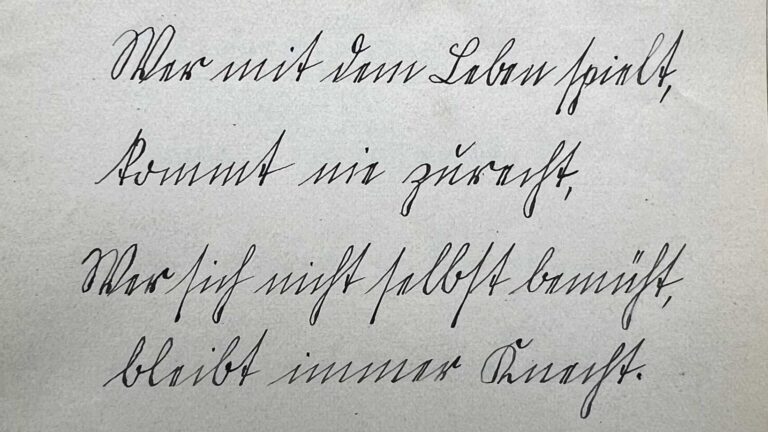 Wer mit dem Leben spielt,
kommt nie zurecht,
Wer sich nicht selbst bemüht,
bleibt immer Knecht.